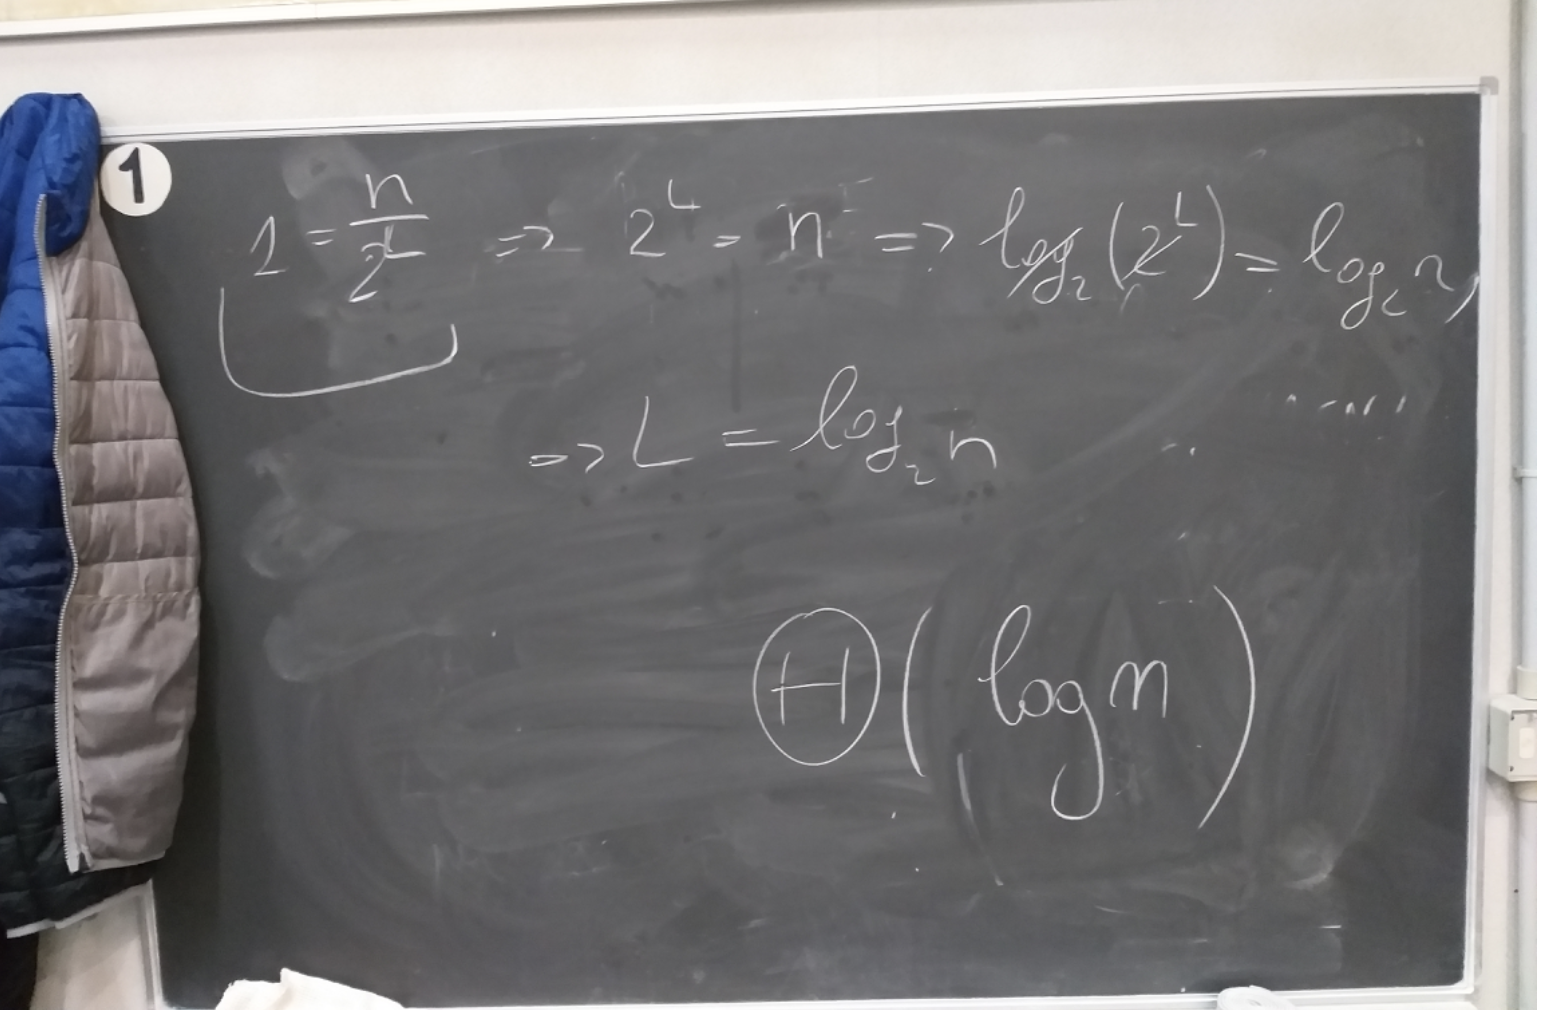 1
1 = n/2^L => 2^L = n => log₂(2^L) = log₂ n,
=> L = log₂ n
Θ(log n)